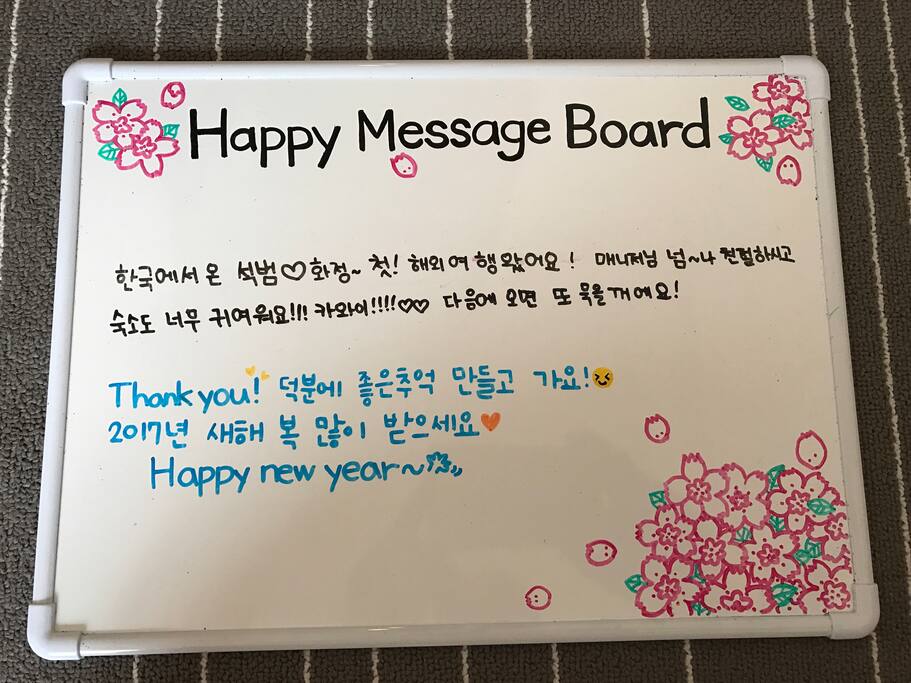 Happy Message Board
한국에서 온 석범♡화정~ 첫! 해외여행왔어요! 매니저님 넘~나 친절하시고
숙소도 너무 귀여워요!!! 카와이!!!!♡♡ 다음에 오면 또 묵을거예요!
Thank you! 덕분에 좋은추억 만들고 가요!😆
2017년 새해 복 많이 받으세요🧡
Happy new year~